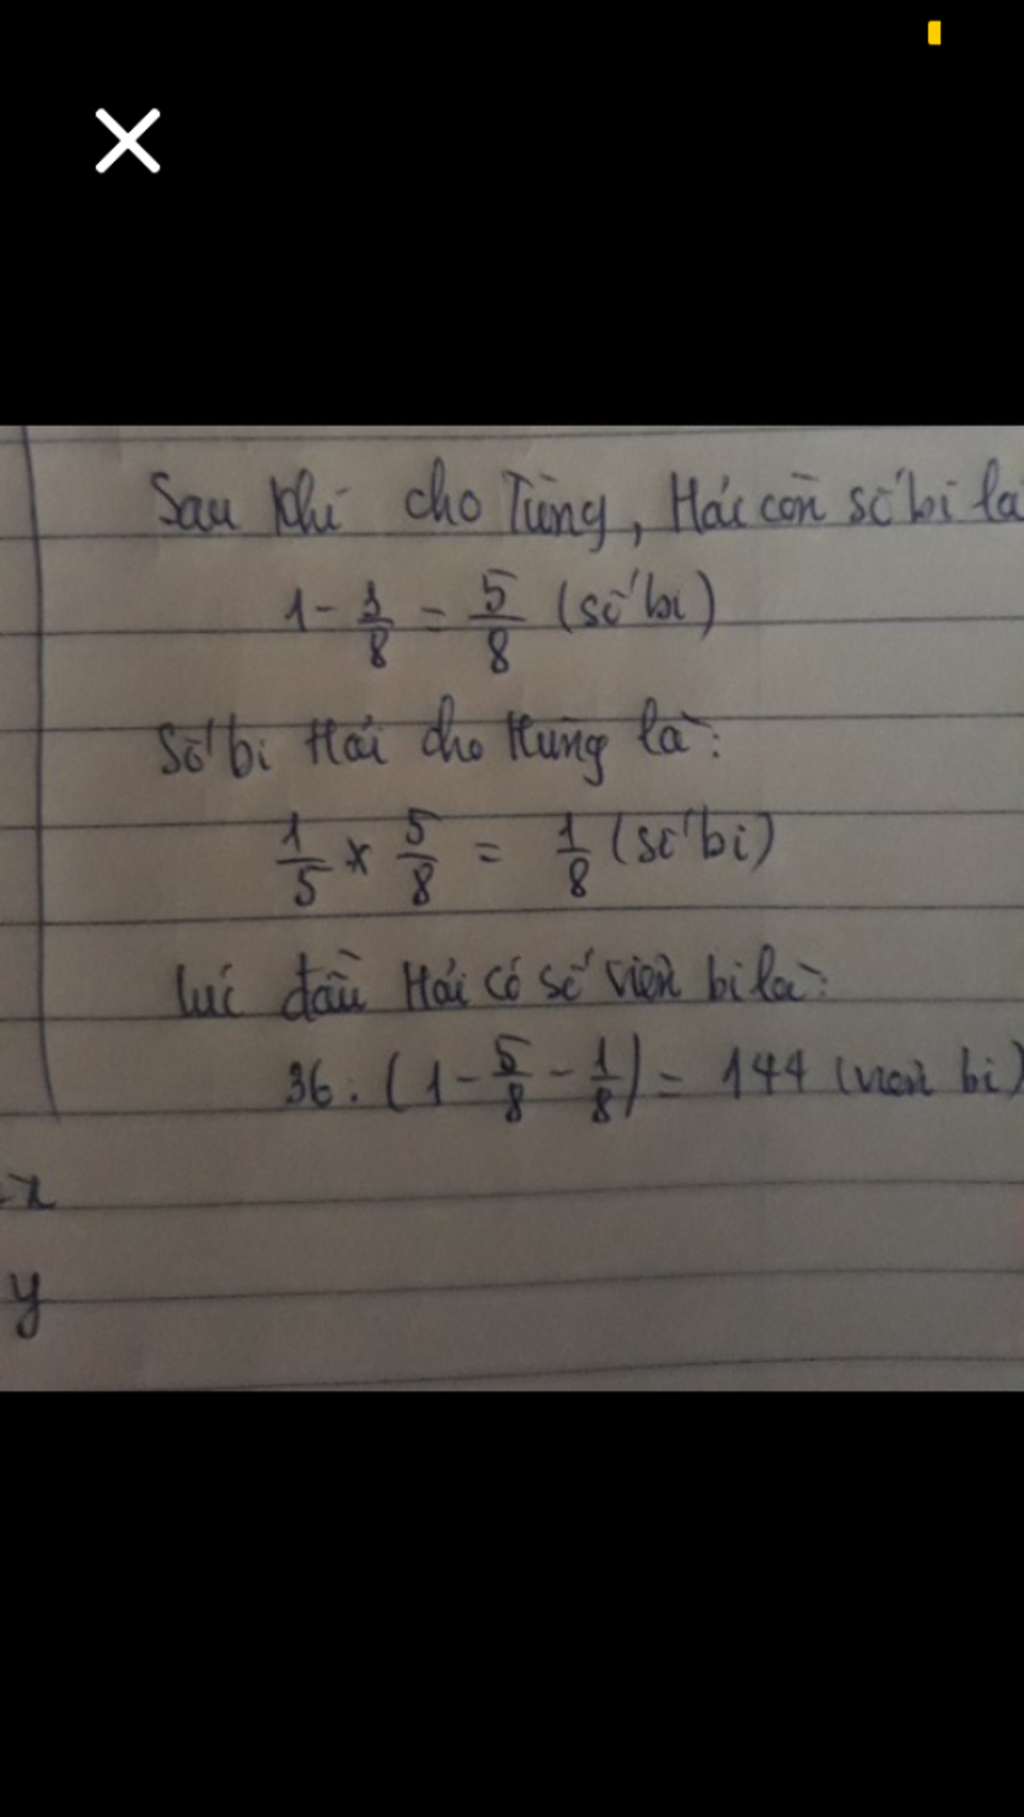 Sau khi cho Tùng, Hải còn số bi là
1 - 3/8 = 5/8 (số bi)
Số bi Hải cho Hùng là:
1/5 x 5/8 = 1/8 (số bi)
lúc đầu Hải có số viên bi là:
36 : (1 - 5/8 - 1/8) = 144 (viên bi)
x
y